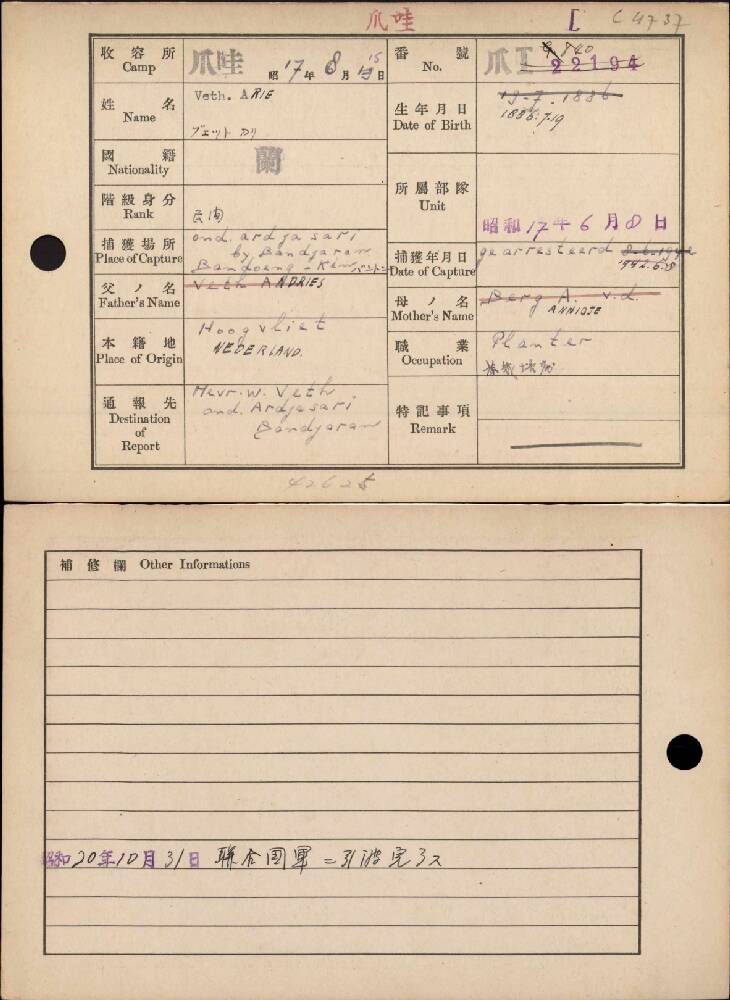 爪哇
C 4737
收容所 Camp
爪哇 昭17年8月15日
番號 No.
22194
姓名 Name
Veth. ARIE
生年月日 Date of Birth
19-7.1886
1886.7.19
國籍 Nationality
蘭
階級身分 Rank
民間
所屬部隊 Unit
昭和17年6月8日
捕獲場所 Place of Capture
ond. ardjasari
by Bandjaran
Bandoeng
捕獲年月日 Date of Capture
gearresteerd 8-6-1942
1942.6.8
父ノ名 Father's Name
Veth ANDRIES
母ノ名 Mother's Name
Berg A. v.d.
ANNIGJE
本籍地 Place of Origin
Hoogvliet
NEDERLAND.
職業 Occupation
Planter
通報先 Destination of Report
Mevr. W. Veth
ond. Ardjasari
Bandjaran
特記事項 Remark
42625
補修欄 Other Informations
昭和20年10月31日 聯合國軍ニ引渡完了ス